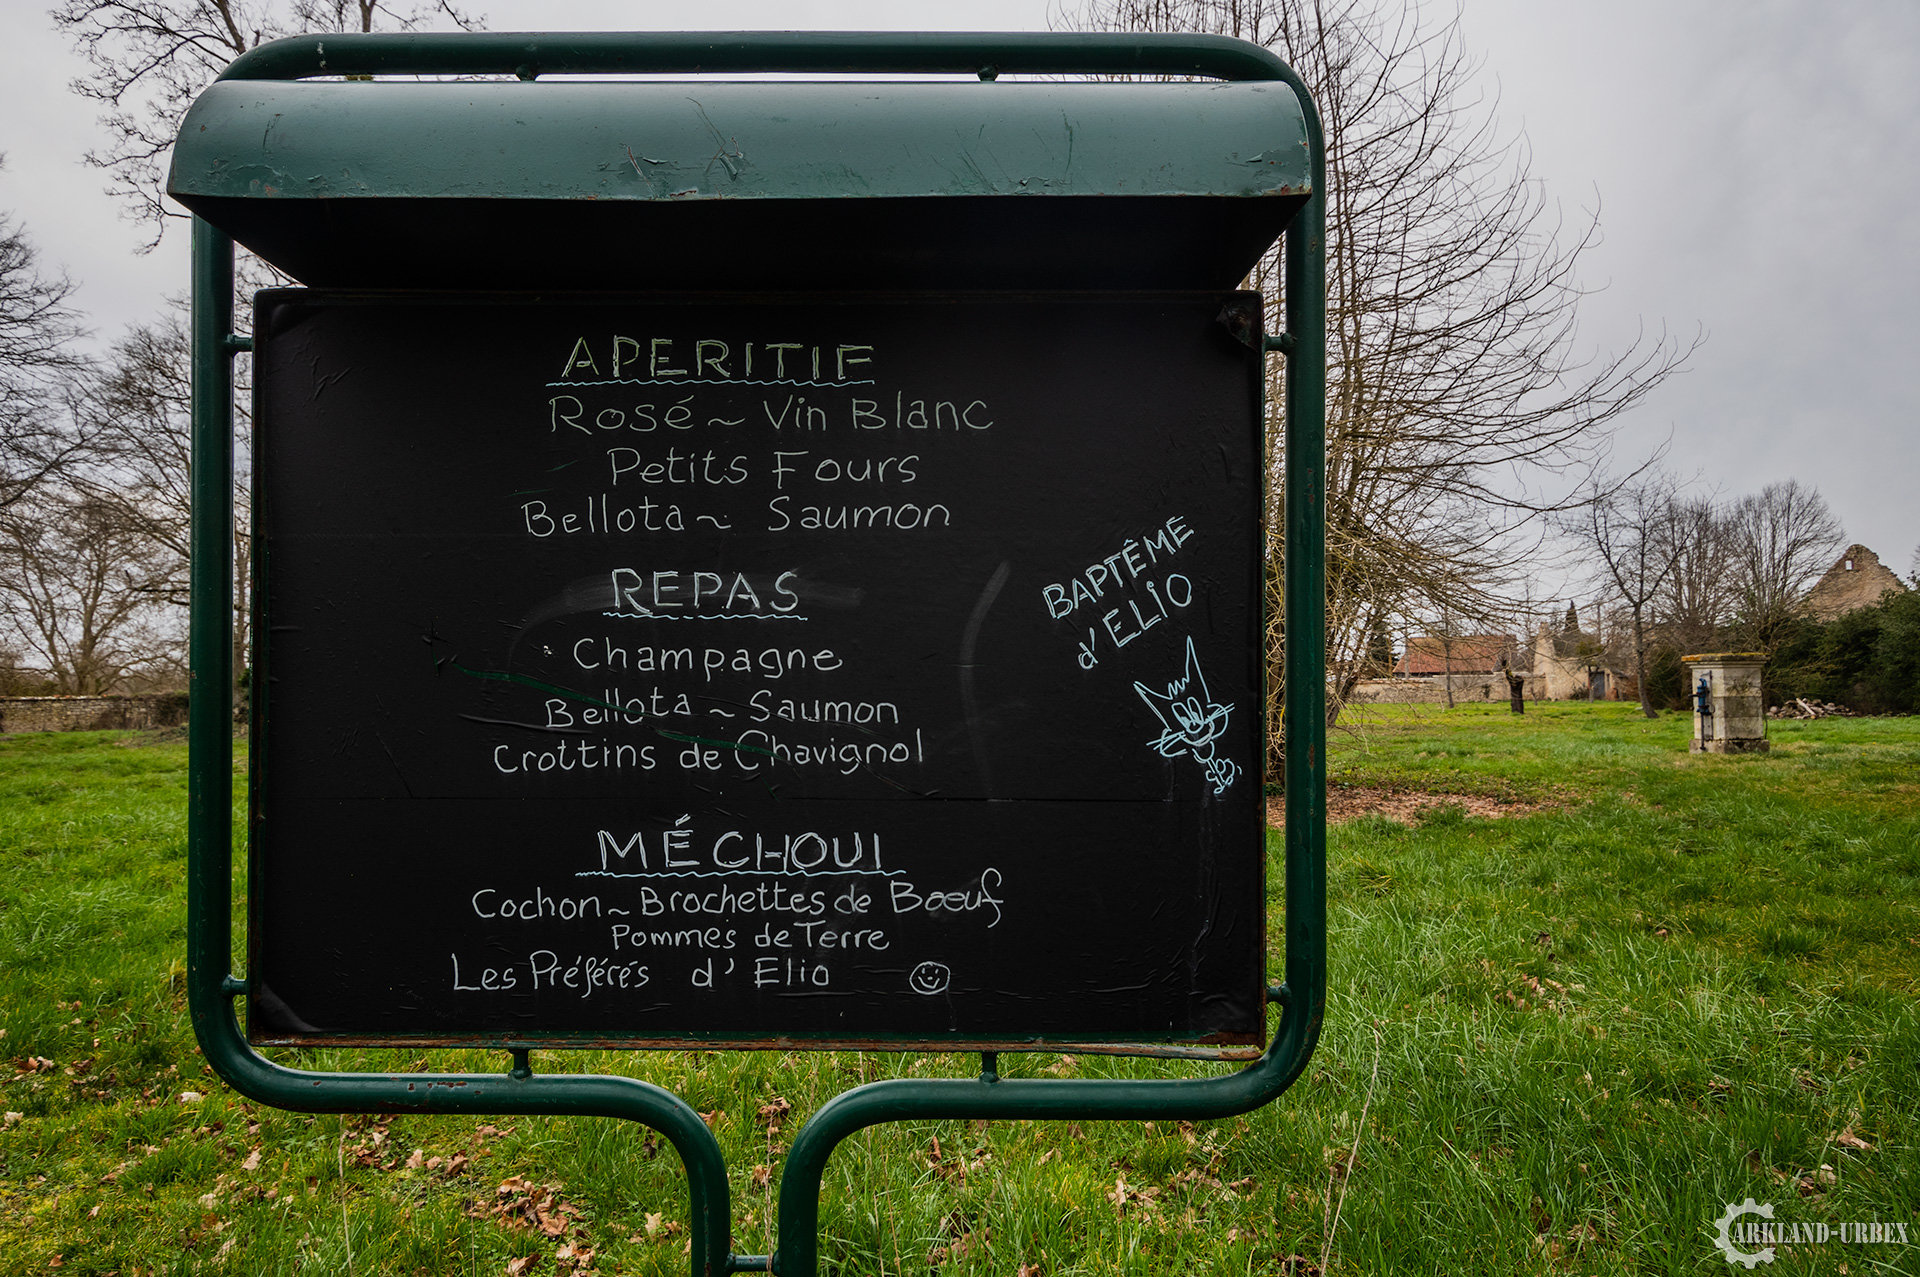 APERITIF
Rosé ~ Vin Blanc
Petits Fours
Bellota ~ Saumon
REPAS
Champagne
Bellota ~ Saumon
Crottins de Chavignol
BAPTÊME
d'ELIO
MÉCHOUI
Cochon ~ Brochettes de Bœuf
Pommes de Terre
Les Préférés d'Elio
ARKLAND-URBEX